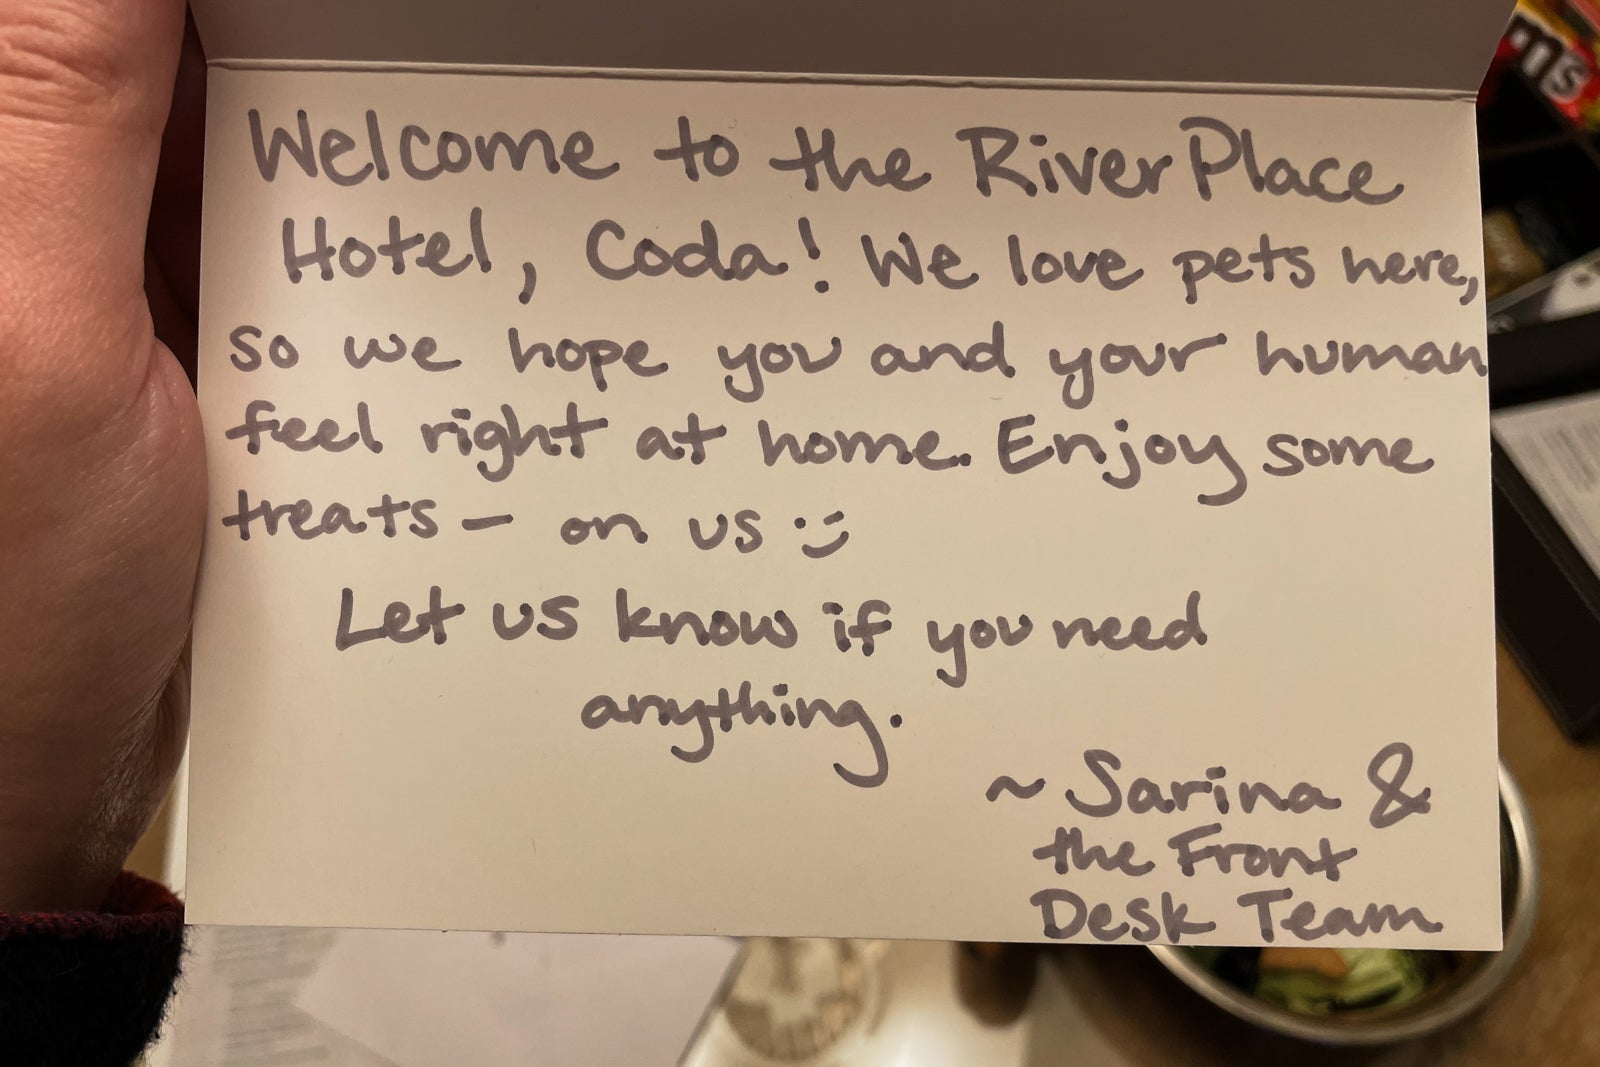 Welcome to the RiverPlace
Hotel, Coda! We love pets here,
so we hope you and your human
feel right at home. Enjoy some
treats — on us :)
Let us know if you need
anything.
~ Sarina &
the Front
Desk Team
m's